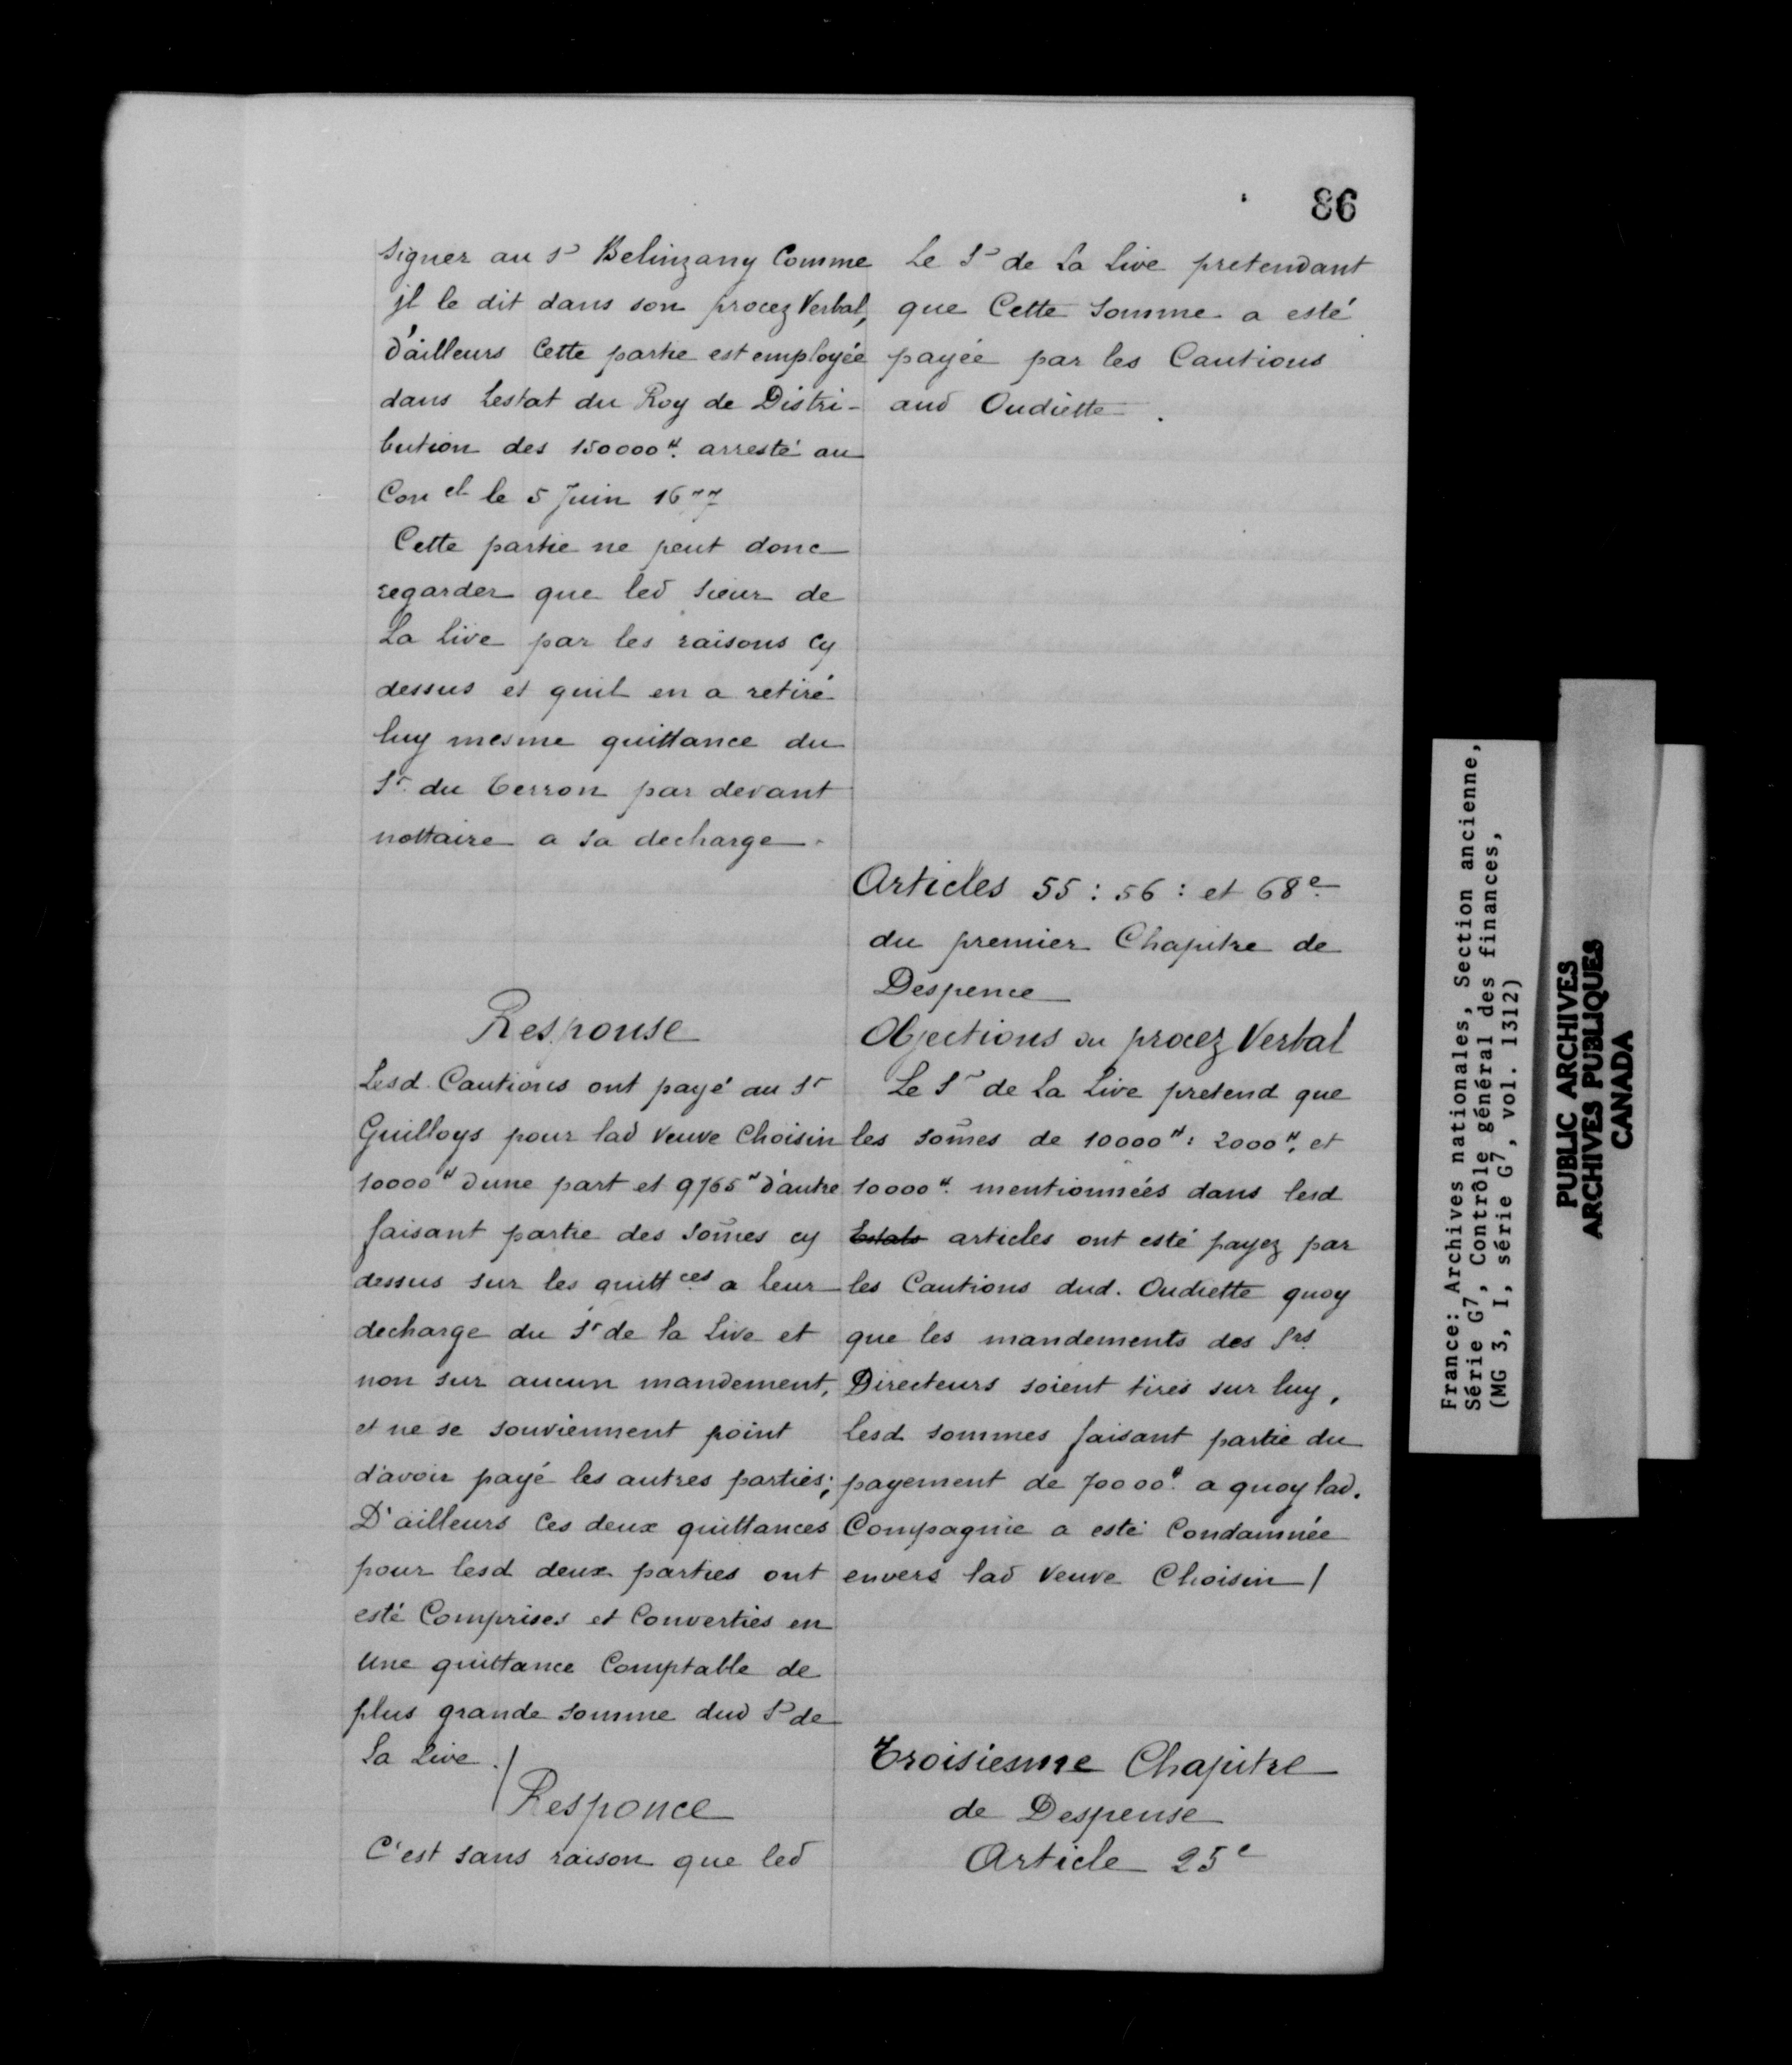 86
signer au Sr Belinzany Comme
jl le dit dans son procez Verbal,
d'ailleurs Cette partie est employée
dans Lestat du Roy de Distri-
bution des 150000ᵗᵗ. arresté au
Con el le 5 Juin 1677
Cette partie ne peut donc
regarder que led sieur de
La Live par les raisons cy
dessus et quil en a retiré
luy mesme quittance du
Sr. du Terron par devant
nottaire a sa decharge.
Response
Lesd. Cautions ont payé au Sr
Guilloys pour lad Veuve Choisin
10000ᵗᵗ d'une part et 9765ᵗᵗ d'autre
faisant partie des som̃es cy
dessus sur les quittces. a leur
decharge du Sr de la Live et
non sur aucun mandement,
et ne se souviennent point
d'avoir payé les autres parties;
D'ailleurs Ces deux quittances
pour lesd deux parties ont
esté Comprises et Converties en
Une quittance Comptable de
plus grande somme dud Sr de
La Live./
Responce
C'est sans raison que led
Le Sr de La Live pretendant
que Cette somme a esté
payée par les Cautions
aud Oudiette.
Articles 55 : 56 : et 68e.
du premier Chapitre de
Despence
Objections du procez Verbal
Le Sr de La Live pretend que
les som̃es de 10000ᵗᵗ: 2000ᵗᵗ. et
10000ᵗᵗ. mentionnées dans lesd
Estats articles ont esté payez par
les Cautions dud. Oudiette quoy
que les mandements des Srs.
Directeurs soient tirés sur luy,
Lesd sommes faisant partie du
payement de 70000ᵗᵗ. a quoy lad.
Compagnie a esté Condamnée
envers lad Veuve Choisin/
Troisiesme Chapitre
de Despense
Article 25e
France: Archives nationales, Section ancienne,
Série G7, Contrôle général des finances,
(MG 3, I, série G7, vol. 1312)
PUBLIC ARCHIVES
ARCHIVES PUBLIQUES
CANADA